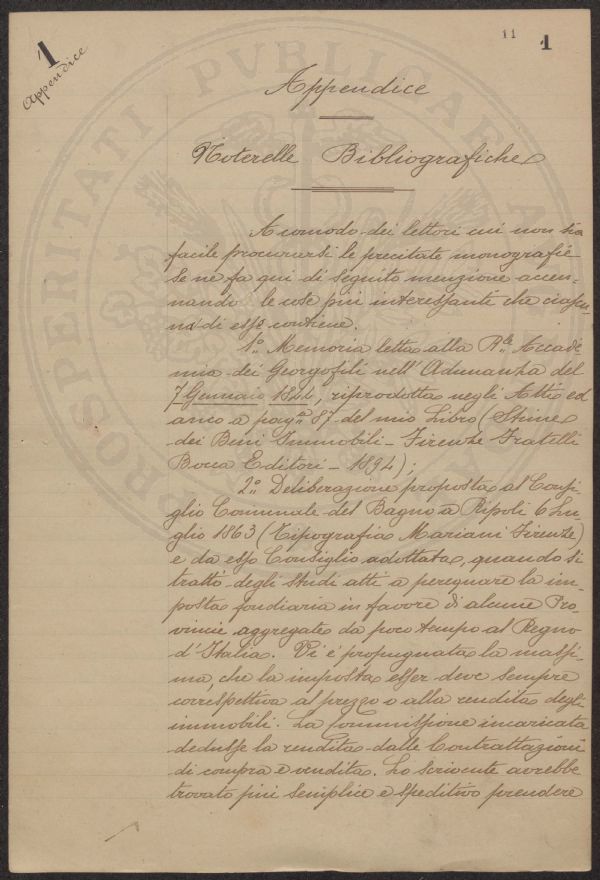 1
Appendice
11
1
Appendice
Noterelle Bibliografiche
A comodo dei lettori cui non sia
facile procurarsi le precitate monografie
se ne fa qui di seguito menzione accen-
nando le cose più interessanti che ciascu-
na di esse contiene.
1.º Memoria letta alla R.le Accade-
mia dei Georgofili nell'Adunanza del
7 Gennaio, riprodotta negli Atti ed
anco a pag.na 87 del mio Libro (Stime
dei Beni Immobili - Firenze Fratelli
Bocca Editori - 1894);
2.º Deliberazione proposta al Consi-
glio Comunale del Bagno a Ripoli 6 Lu-
glio 1863 (Tipografia Mariani Firenze)
e da esso Consiglio adottata, quando si
trattò degli studi atti a perequare la im-
posta fondiaria in favore di alcune Pro-
vincie aggregate da poco tempo al Regno
d'Italia. Vi è propugnata la massi-
ma, che la imposta esser deve sempre
correspettiva al prezzo o alla rendita degli
immobili. La Commissione incaricata
dedusse la rendita dalle Contrattazioni
di compra e vendita. Lo scrivente avrebbe
trovato più semplice e speditivo prendere
PROSPERITATI PVBLICAE